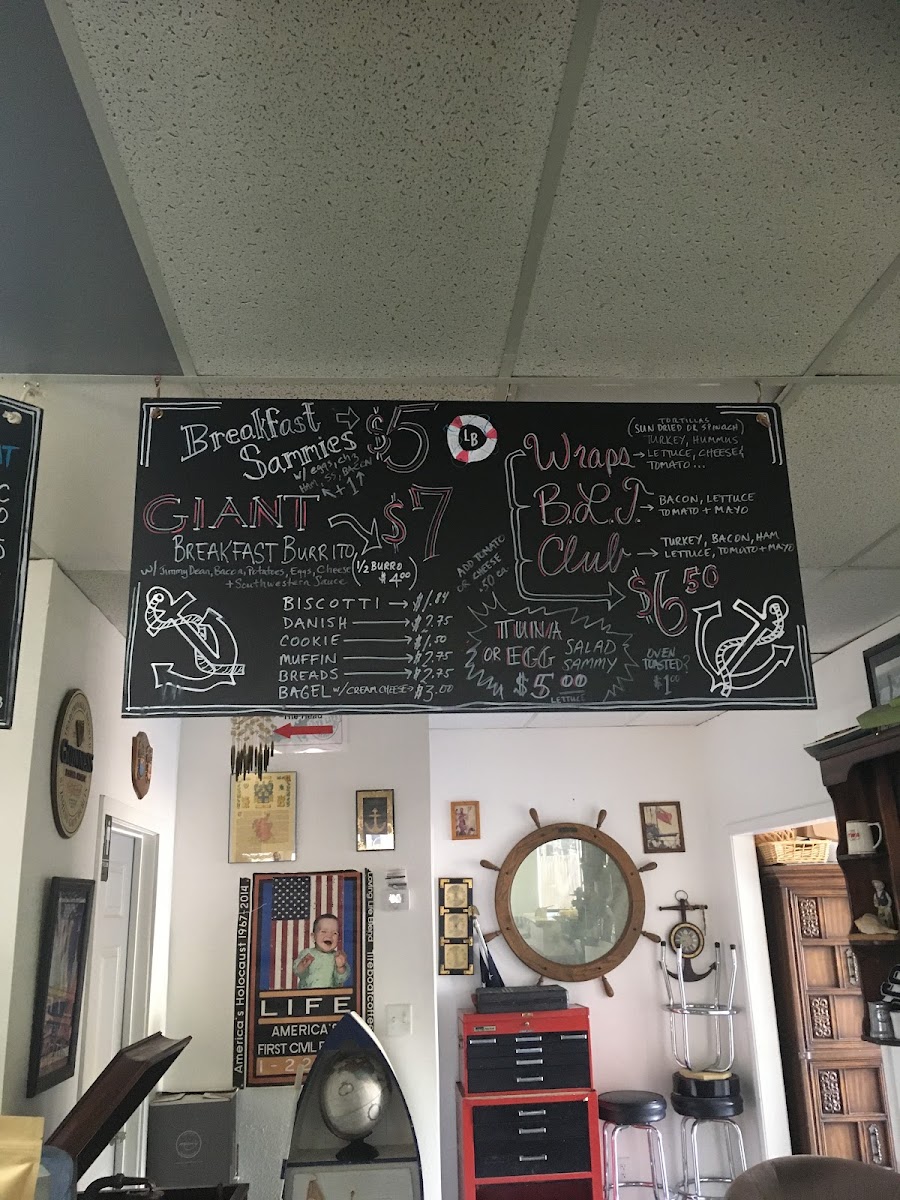 Breakfast
Sammies
$5
w/ eggs, chz
HAM, SS, BACON
+1
LB
GIANT
$7
BREAKFAST BURRITO
w/ Jimmy Dean, Bacon, Potatoes, Eggs, Cheese
+ Southwestern Sauce
1/2 BURRO
$4.00
BISCOTTI $1.84
DANISH $2.75
COOKIE $1.50
MUFFIN $2.75
BREADS $2.75
BAGEL w/ CREAM CHEESE $3.00
ADD TOMATO
OR CHEESE
.50 ea.
Wraps
TORTILLAS
(SUN DRIED OR SPINACH)
TURKEY, HUMMUS
LETTUCE, CHEESE &
TOMATO...
B.L.T.
BACON, LETTUCE
TOMATO + MAYO
Club
TURKEY, BACON, HAM
LETTUCE, TOMATO + MAYO
$6.50
TUNA
OR EGG
SALAD
SAMMY
$5.00
LETTUCE
OVEN
TOASTED?
$1.00
GUINNESS
America's Holocaust 1967-2014
LIFE
AMERICA'S
FIRST CIVIL
Loving Life Blend